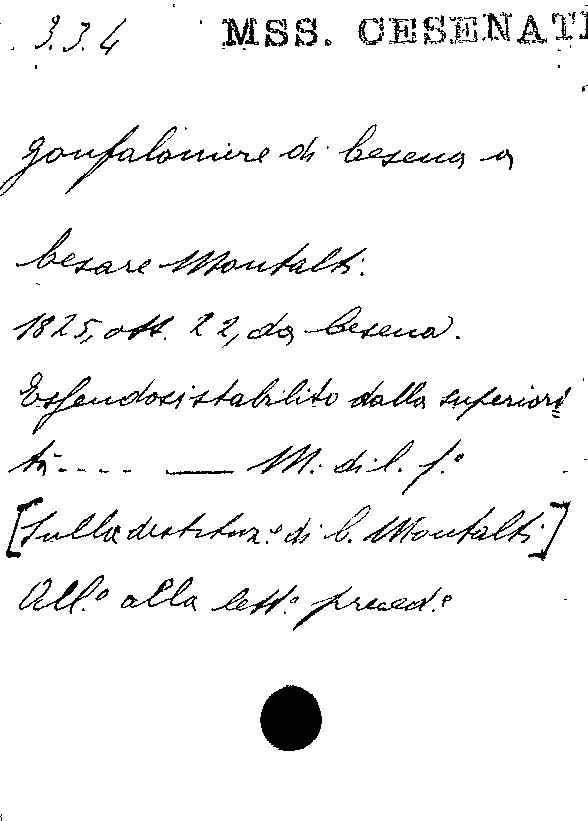 3.3.4 MSS. CESENATI
Gonfaloniere di Cesena a
Cesare Montalti.
1825, ott. 22, da Cesena.
Essendosi stabilito dalla superiori
tà.... — M. di l. f.º
[Sulla destituz.e di C. Montalti]
All.º alla lett.ª preced.e